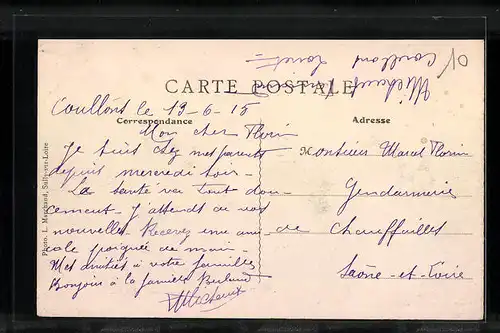 Coullons
Loiret
CARTE POSTALE
Coullons le 19-6-15
Correspondance
Adresse
Mon cher Florin
Je suis chez mes parents
depuis mercredi soir.
La santé va tout dou-
cement. J'attends de vos
nouvelles. Recevez une ami-
cale poignée de main.
Mes amitiés à votre famille
Bonjour à la famille
Monsieur Marcel Florin
Gendarmerie
de Chauffailles
Saône-et-Loire
Photo. L. Marchand, Sully-sur-Loire